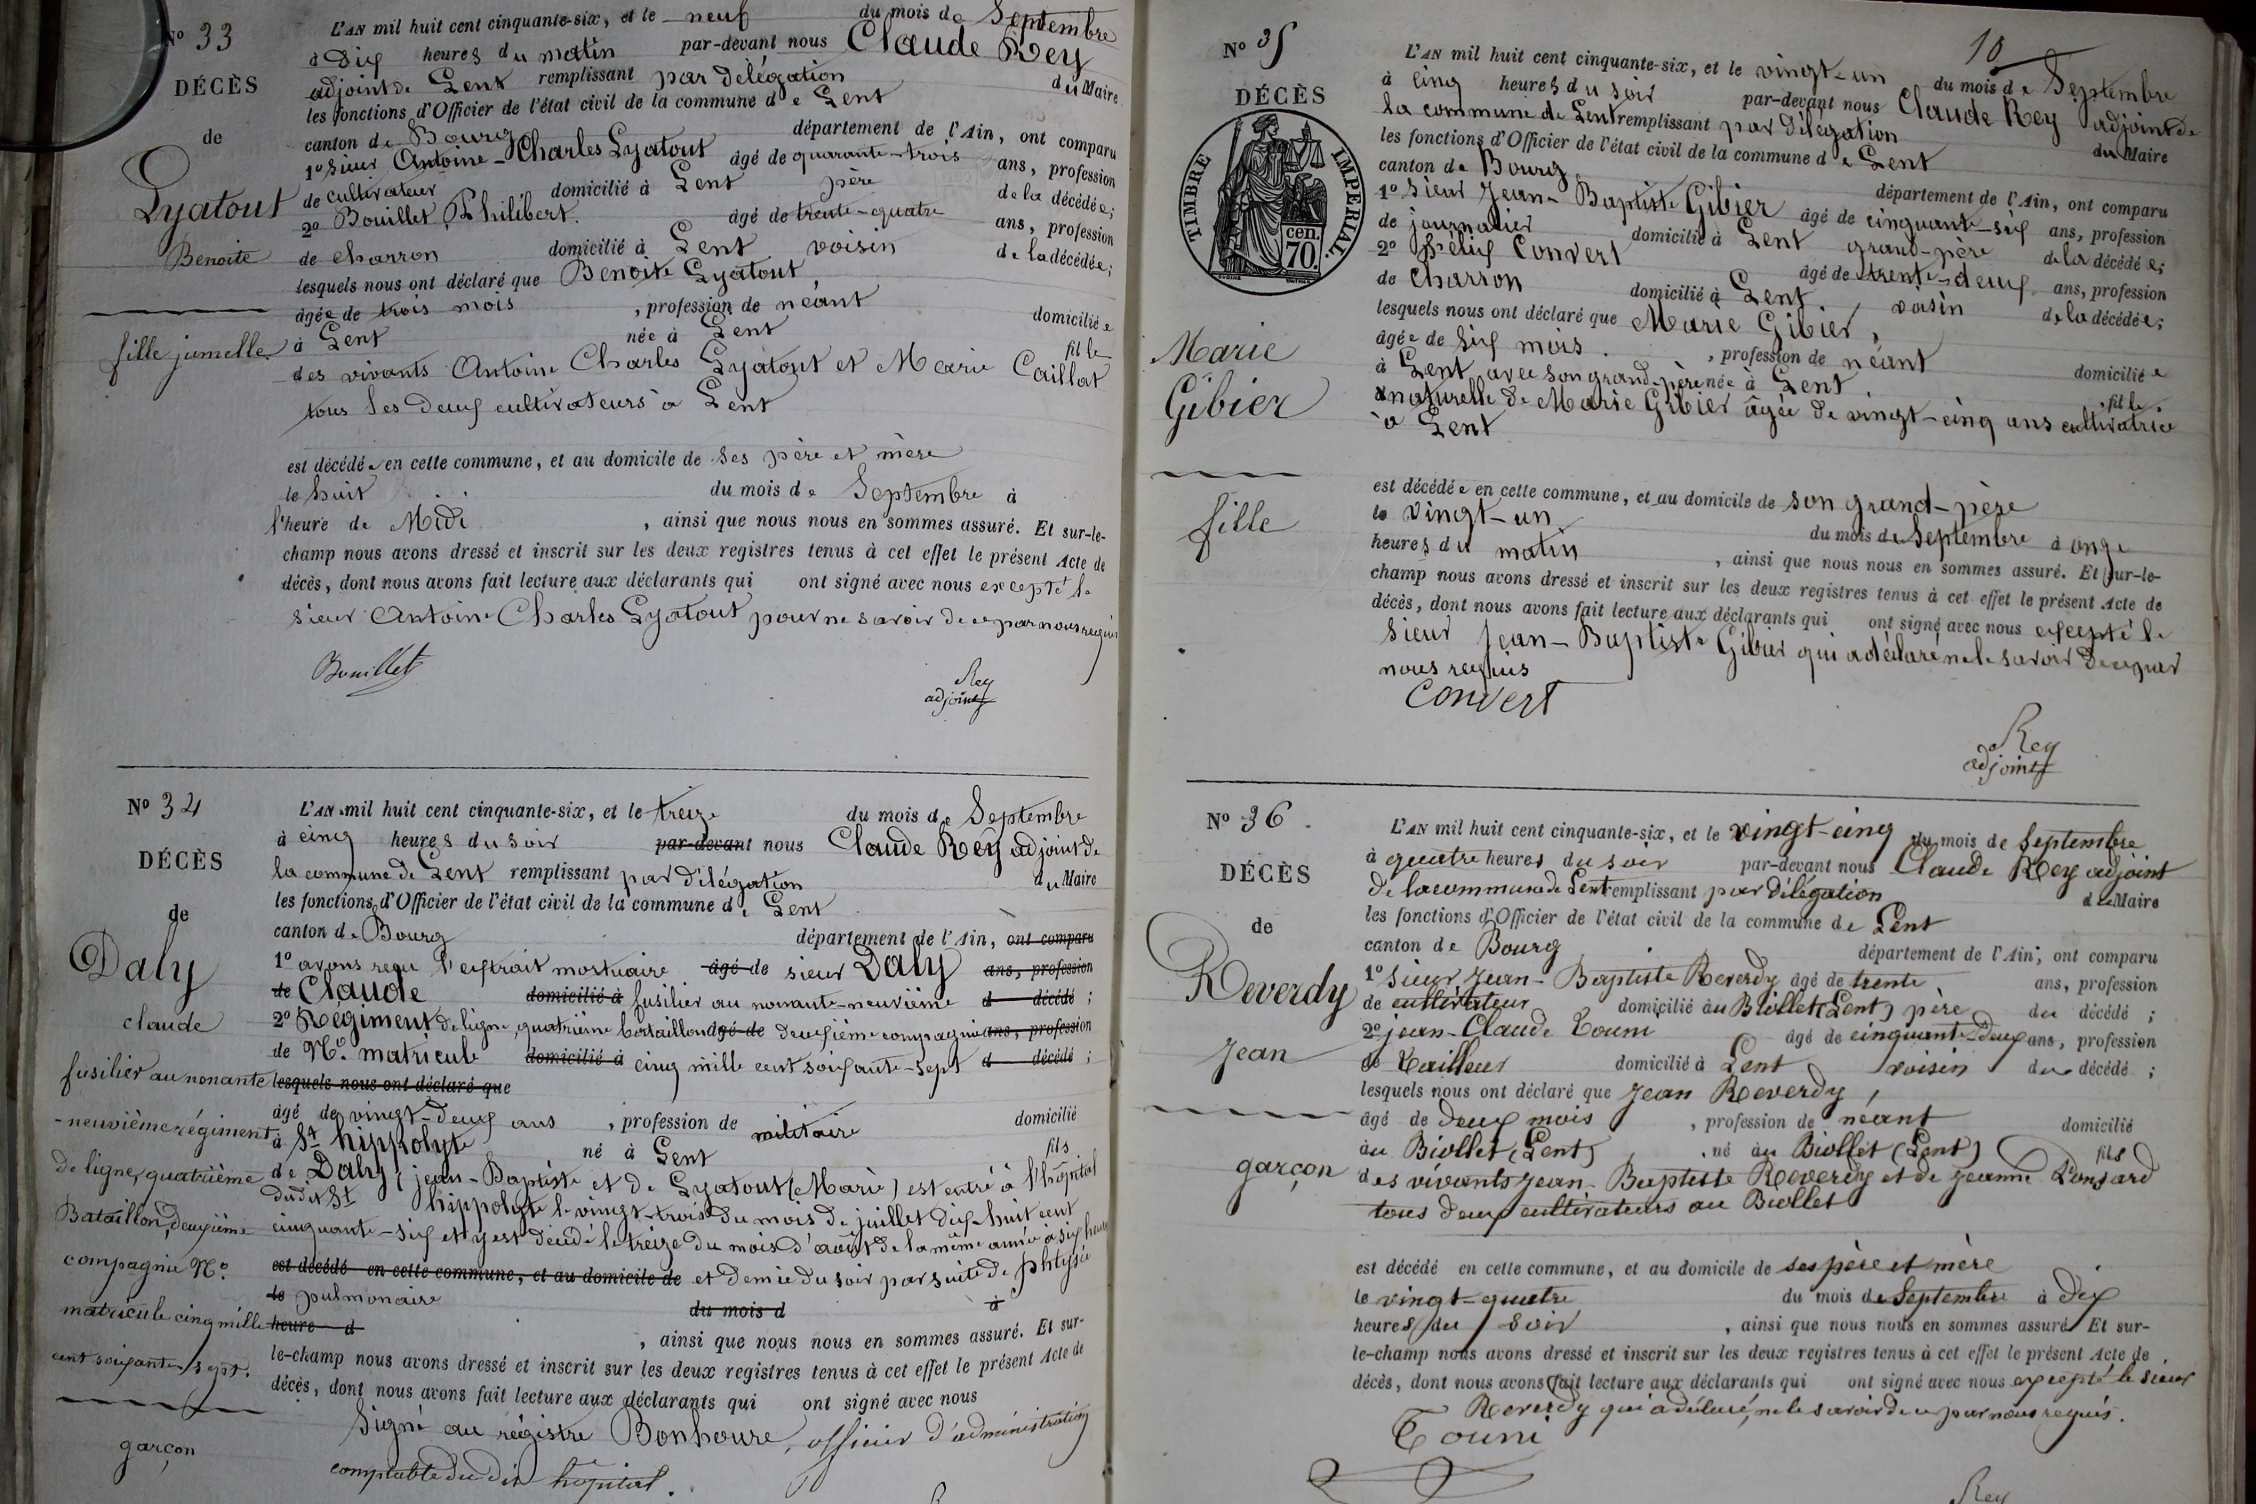 No 33
DÉCÈS
de
Lyatout
Benoite
fille jumelle
L'AN mil huit cent cinquante-six, et le neuf du mois de Septembre
à dix heures du matin par-devant nous Claude Rey
adjoint de Lent remplissant par délégation du Maire
les fonctions d'Officier de l'état civil de la commune de Lent
canton de Bourg département de l'Ain, ont comparu
1º Sieur Antoine-Charles Lyatout âgé de quarante-trois ans, profession
de cultivateur domicilié à Lent père de la décédée;
2º Bouillet Philibert. âgé de trente-quatre ans, profession
de charron domicilié à Lent voisin de la décédée;
lesquels nous ont déclaré que Benoite Lyatout
âgée de trois mois , profession de néant domiciliée
à Lent née à Lent fille
des vivants Antoine Charles Lyatout et Marie Caillat
tous les deux cultivateurs à Lent
est décédée en cette commune, et au domicile de ses père et mère
le huit du mois de Septembre à
l'heure de Midi , ainsi que nous nous en sommes assuré. Et sur-le-
champ nous avons dressé et inscrit sur les deux registres tenus à cet effet le présent Acte de
décès, dont nous avons fait lecture aux déclarants qui ont signé avec nous excepté le
sieur Antoine Charles Lyatout pour ne savoir de ce par nous requis
Bouillet
Rey
adjoint
No 34
DÉCÈS
de
Daly
claude
fusilier au nonante
-neuvième régiment
de ligne, quatrième
Bataillon, deuxième
compagnie No.
matricule cinq mille
cent soixante-sept.
garçon
L'AN mil huit cent cinquante-six, et le treize du mois de Septembre
à cinq heures du soir par-devant nous Claude Rey adjoint de
la commune de Lent remplissant par délégation du Maire
les fonctions d'Officier de l'état civil de la commune de Lent
canton de Bourg département de l'Ain, ont comparu
1º avons reçu l'extrait mortuaire âgé de sieur Daly ans, profession
de Claude domicilié à fusilier au nonante-neuvième d décédé ;
2º Régiment de ligne, quatrième bataillon âgé de deuxième compagnie ans, profession
de No. matricule domicilié à cinq mille cent soixante-sept d décédé ;
lesquels nous ont déclaré que
âgé de vingt-deux ans , profession de militaire domicilié
à St hippolyte né à Lent fils
de Daly (jean-Baptiste et de Lyatout (Marie) est entré à l'hôpital
dudit St hippolyte le vingt-trois du mois de juillet dix-huit cent
cinquante-six et y est décédé le treize du mois d'août de la même année à six heures
est décédé en cette commune, et au domicile de et demie du soir par suite de phtysie
le pulmonaire du mois d à
heure d , ainsi que nous nous en sommes assuré. Et sur-
le-champ nous avons dressé et inscrit sur les deux registres tenus à cet effet le présent Acte de
décès, dont nous avons fait lecture aux déclarants qui ont signé avec nous
Signé au régistre Bonhoure, officier d'administration
comptable du dit hôpital.
10
No 35
DÉCÈS
TIMBRE IMPÉRIAL.
cen.
70.
Marie
Gibier
fille
L'AN mil huit cent cinquante-six, et le vingt-un du mois de Septembre
à cinq heures du soir par-devant nous Claude Rey adjoint de
la commune de Lent remplissant par délégation du Maire
les fonctions d'Officier de l'état civil de la commune de Lent
canton de Bourg département de l'Ain, ont comparu
1º Sieur Jean-Baptiste Gibier âgé de cinquante-six ans, profession
de journalier domicilié à Lent grand-père de la décédée;
2º félix Convert âgé de trente-deux ans, profession
de charron domicilié à Lent, voisin de la décédée;
lesquels nous ont déclaré que Marie Gibier,
âgée de six mois. , profession de néant domiciliée
à Lent avec son grand-père née à Lent fille
naturelle de Marie Gibier âgée de vingt-cinq ans cultivatrice
à Lent
est décédée en cette commune, et au domicile de son grand-père
le vingt-un du mois de Septembre à onze
heures du matin , ainsi que nous nous en sommes assuré. Et sur-le-
champ nous avons dressé et inscrit sur les deux registres tenus à cet effet le présent Acte de
décès, dont nous avons fait lecture aux déclarants qui ont signé avec nous excepté le
sieur Jean-Baptiste Gibier qui a déclaré ne le savoir de ce par
nous requis
Convert
Rey
adjoint
No 36
DÉCÈS
de
Reverdy
Jean
garçon
L'AN mil huit cent cinquante-six, et le vingt-cinq du mois de Septembre
à quatre heures du soir par-devant nous Claude Rey adjoint
de la commune de Lent remplissant par délégation du Maire
les fonctions d'Officier de l'état civil de la commune de Lent
canton de Bourg département de l'Ain, ont comparu
1º Sieur Jean-Baptiste Reverdy âgé de trente ans, profession
de cultivateur domicilié au Biollet (Lent) père du décédé ;
2º jean-Claude Touni âgé de cinquante-deux ans, profession
de Tailleur domicilié à Lent voisin du décédé ;
lesquels nous ont déclaré que Jean Reverdy,
âgé de deux mois , profession de néant domicilié
au Biollet (Lent) , né au Biollet (Lent) fils
des vivants Jean-Baptiste Reverdy et de Jeanne
tous deux cultivateurs au Biollet
est décédé en cette commune, et au domicile de ses père et mère
le vingt-quatre du mois de Septembre à dix
heures du soir , ainsi que nous nous en sommes assuré. Et sur-
le-champ nous avons dressé et inscrit sur les deux registres tenus à cet effet le présent Acte de
décès, dont nous avons fait lecture aux déclarants qui ont signé avec nous excepté le sieur
Reverdy qui a déclaré, ne le savoir de ce par nous requis.
Touni
Rey